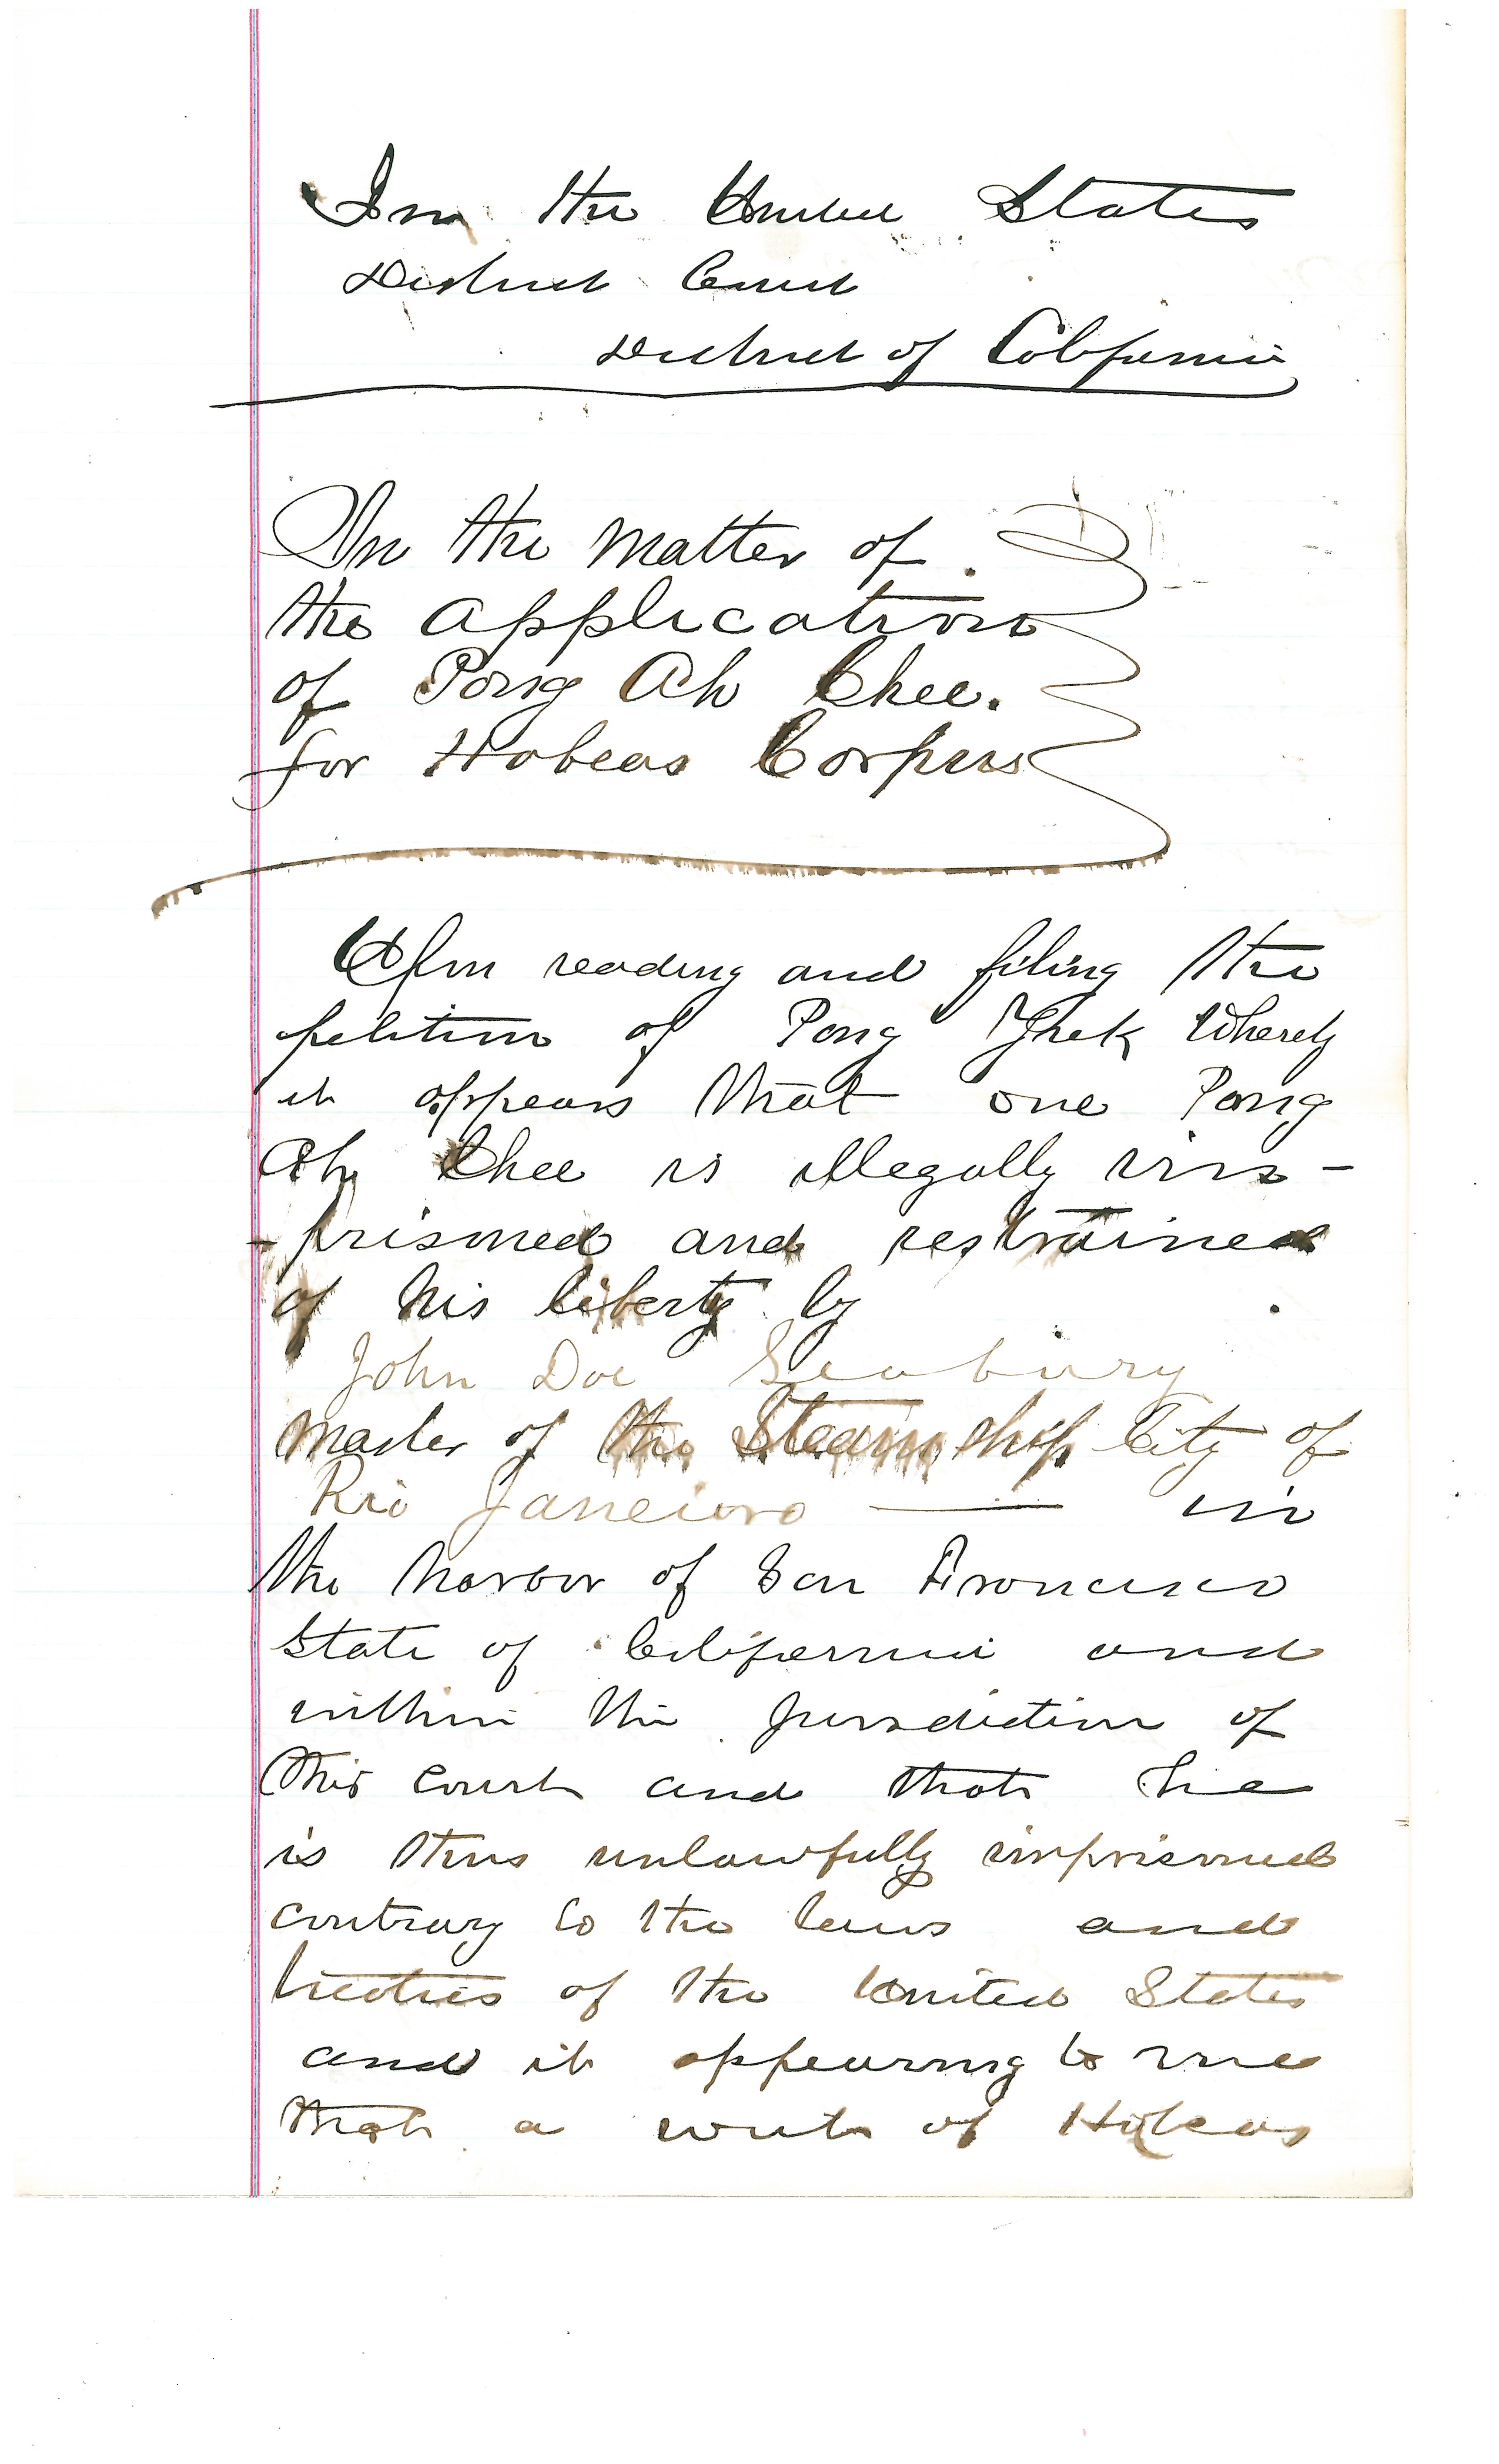 In the United States
District Court
District of California
In the matter of
the application
of Pong Ah Chee.
for Habeas Corpus
Upon reading and filing the
petition of Pong Yhek whereby
it appears that one Pong
Ah Chee is illegally im-
-prisoned and restrained
of his liberty by
John Doe Seabury
master of the Steam ship City of
Rio Janeioro — in
the harbor of San Francisco
State of California and
within the jurisdiction of
this court and that he
is thus unlawfully imprisoned
contrary to the laws and
treaties of the United States
and it appearing to me
that a writ of Habeas